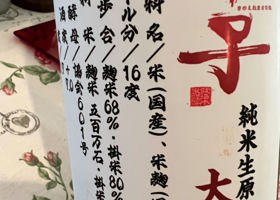 子
純米生原
大
料名/米(国産)、米麹
ル分/16度
歩合/麹米68%・掛米80%
料米/麹米 五百万石・掛米
酵母/協会601号
酒度/+